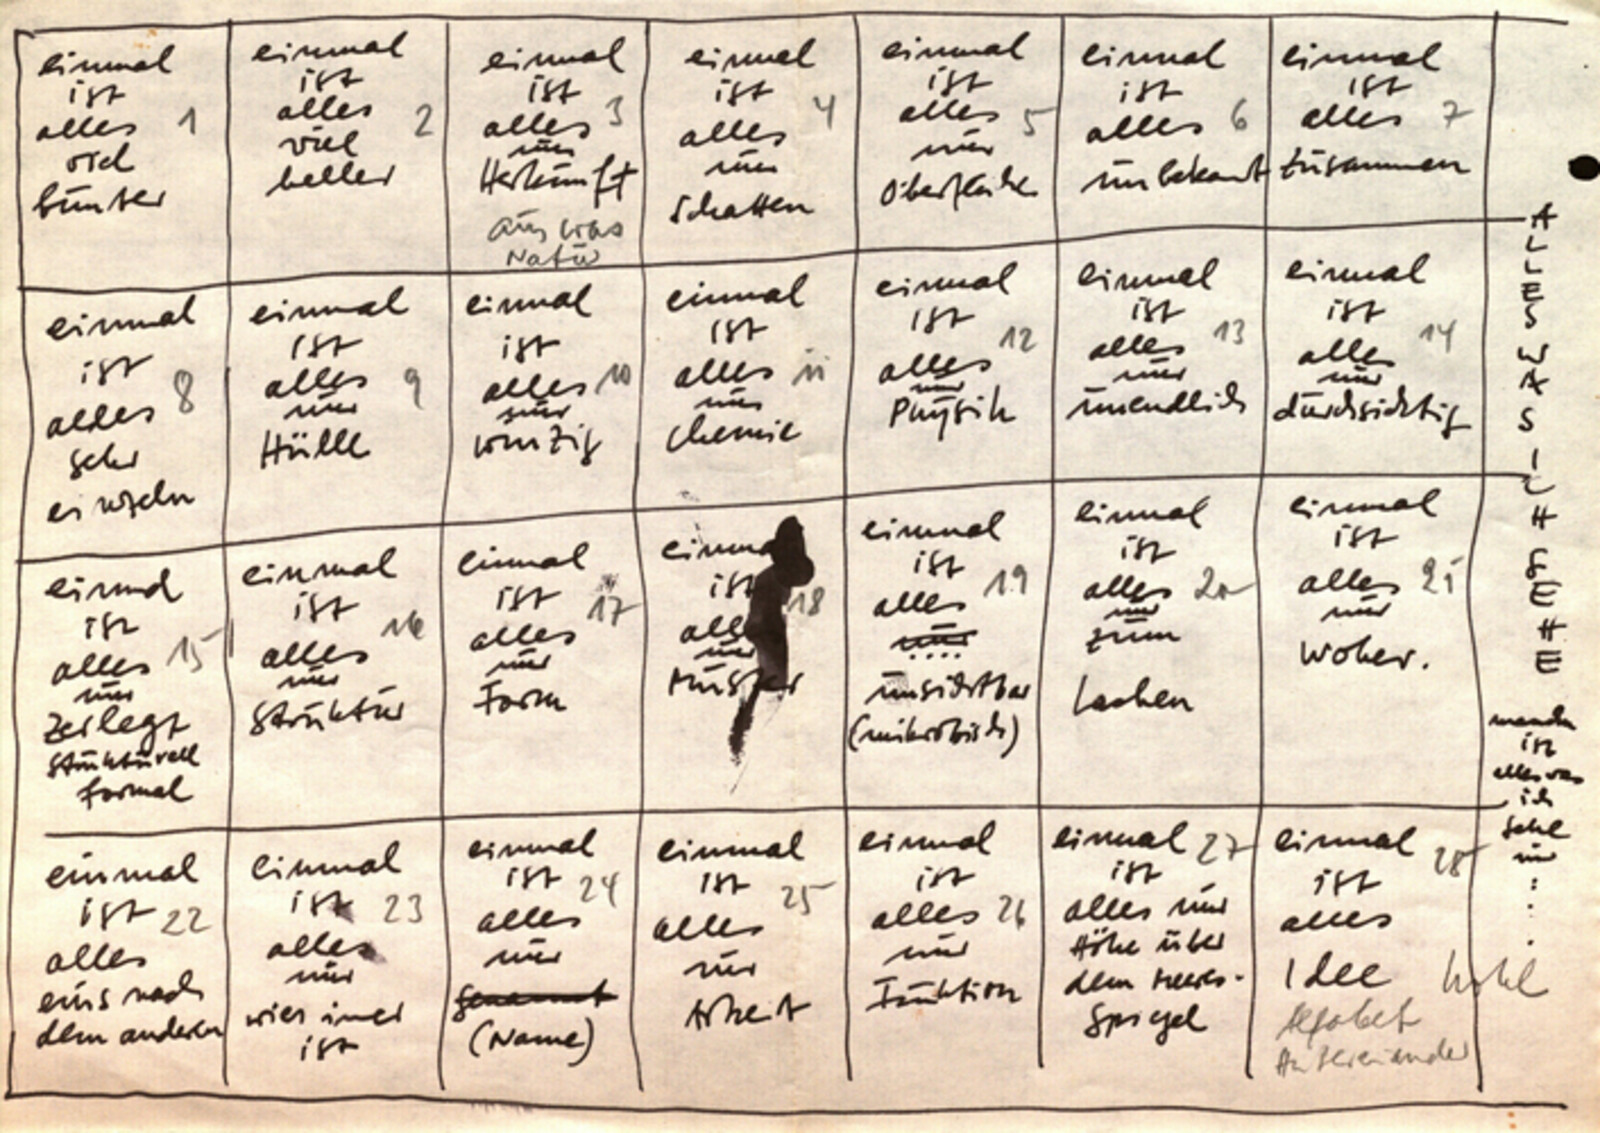 einmal
ist
alles 1
viel
bunter
einmal
ist
alles 2
viel
heller
einmal
ist
alles 3
nur
Herkunft
aus was
Natur
einmal
ist
alles 4
nur
Schatten
einmal
ist
alles 5
nur
Oberfläche
einmal
ist
alles 6
unbekannt
einmal
ist
alles 7
zusammen
einmal
ist
alles 8
sehr
einzeln
einmal
ist
alles 9
nur
Hülle
einmal
ist
alles 10
nur
winzig
einmal
ist
alles 11
nur
Chemie
einmal
ist
alles 12
nur
Physik
einmal
ist
alles 13
nur
unendlich
einmal
ist
alles 14
nur
durchsichtig
einmal
ist
alles 15
nur
zerlegt
strukturell
formal
einmal
ist
alles 16
nur
Struktur
einmal
ist 17
alles
nur
Form
einmal
ist 18
alles
nur
Muster
einmal
ist
alles 19
nur
unsichtbar
(mikrobisch)
einmal
ist
alles 20
nur
zum
Lachen
einmal
ist
alles 21
nur
woher.
einmal
ist 22
alles
eins nach
dem andern
einmal
ist 23
alles
nur
wies imer
ist
einmal
ist 24
alles
nur
genannt
(Name)
einmal
ist 25
alles
nur
Arbeit
einmal
ist
alles 26
nur
Funktion
einmal 27
ist
alles nur
Höhe über
dem Meeres-
Spiegel
einmal 28
ist
alles
Idee
Alfabet
ALLES WAS ICH SEHE
ist
alles was
ich
sehe
nur